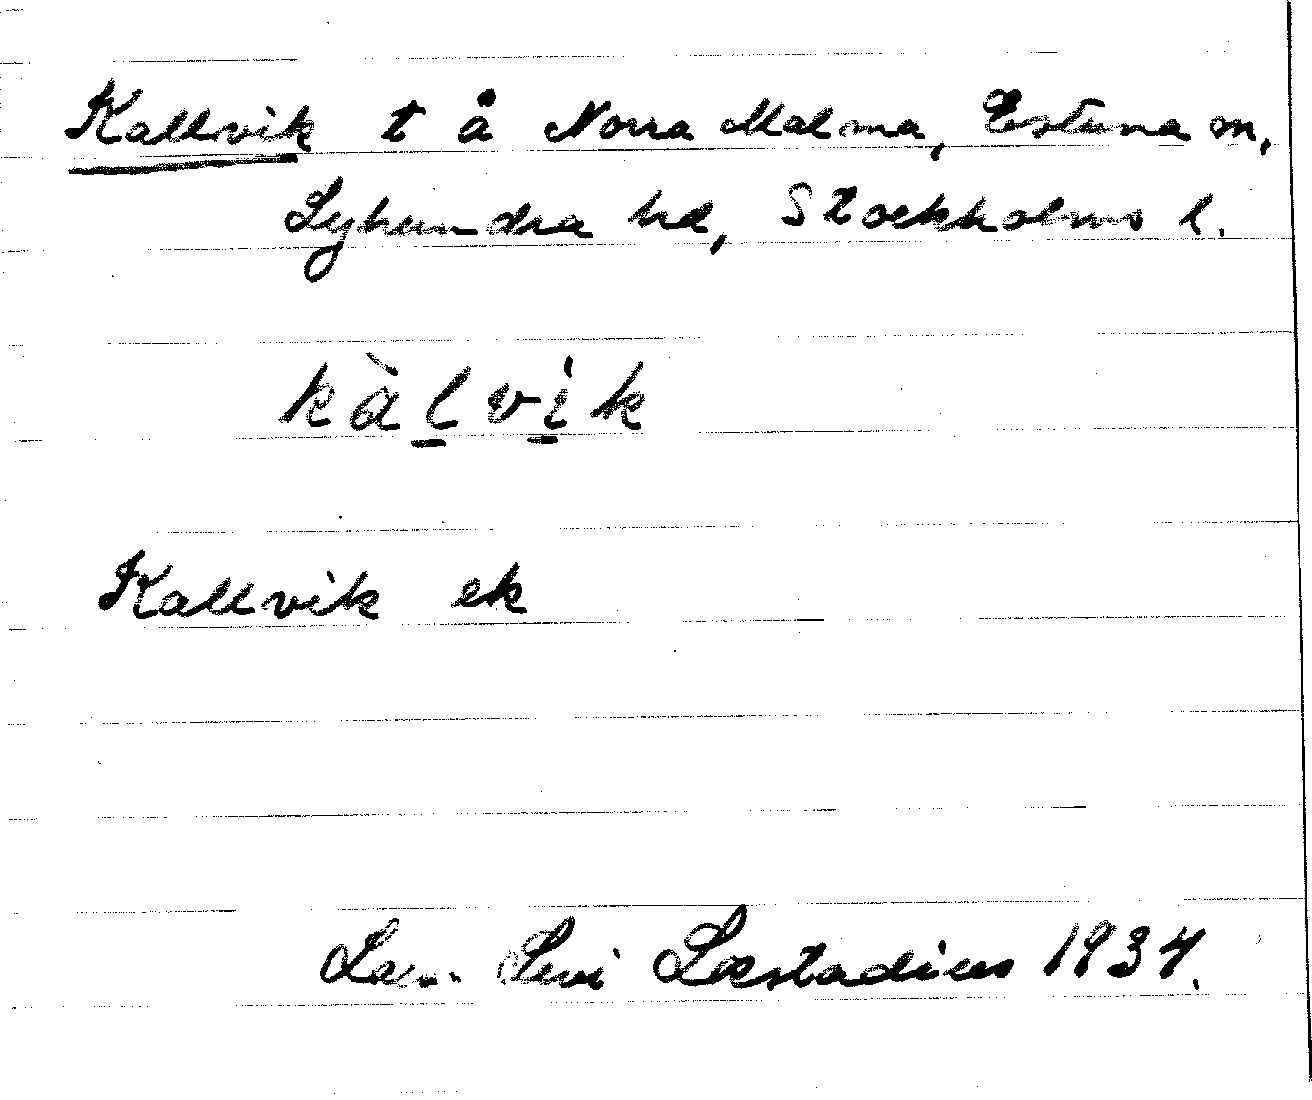 Kallvik t å Norra Malma, Estuna sn,
Lyhundra hd, Stockholms l.
kàl̲vi̲k
Kallvik ek
Levi Læstadius 1934.